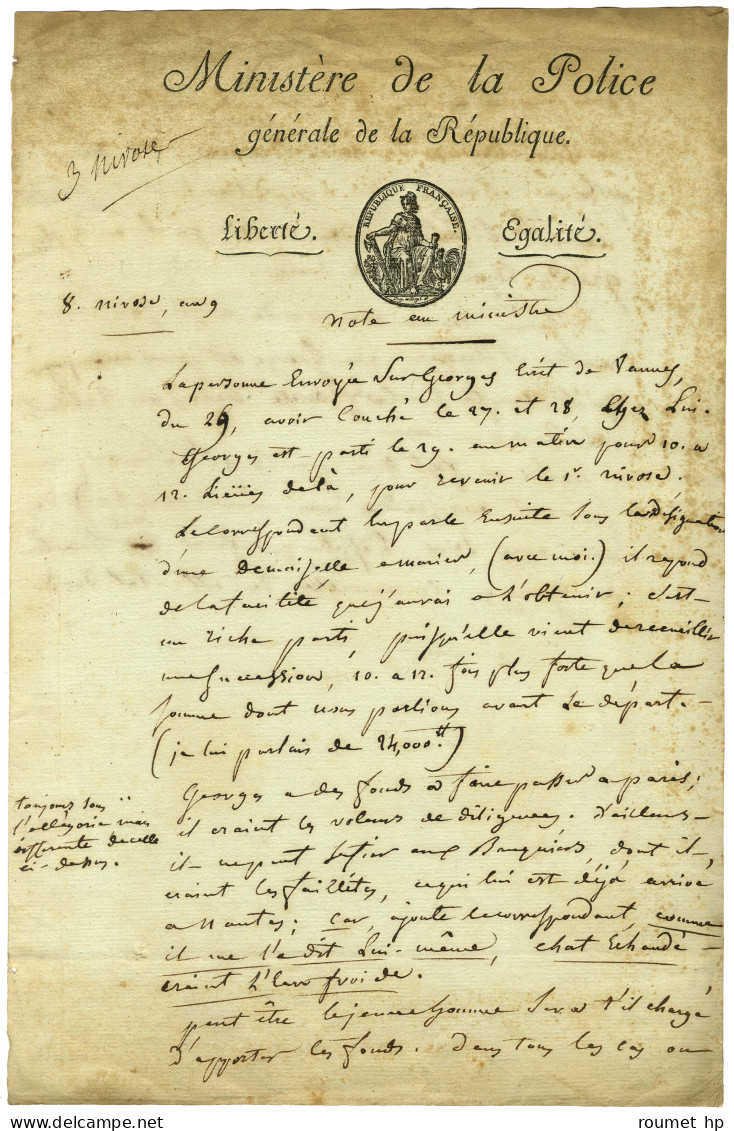 Ministère de la Police
générale de la République.
3 nivose
Liberté.
REPUBLIQUE FRANÇAISE.
Egalité.
8. nivose, an 9
note au ministre
La personne Envoyée Sur Georges Ecrit de Vannes,
du 29, avoir Couché le 27. et 28, chez Lui.
Georges est parti le 29. au matin pour 10. a
12. Lieües delà, pour revenir le 1r. nivose.
Le correspondant parle Ensuite Sous la désignation
d'une Demoiselle a marier, (avec moi.) il repond
de la facilité que j'aurai a l'obtenir; c'est
un riche parti, puisqu'elle vient de recueillir
une Succession, 10. a 12. fois plus forte que la
somme dont nous parlions avant Le départ.
(je lui parlais de 24,000tt)
Georges a des fonds a faire passer a paris;
toujours sous
l'allégorie mais
differente de celle
ci-dessus.
il craint les voleurs de diligences. d'ailleurs
il ne peut se fier aux Banquiers, dont il
craint les faillites, ce qui lui est déjà arrivé
a Nantes; car, ajoute le correspondant, comme
il me l'a dit Lui-même, chat Echaudé
craint L'eau froide.
peut être le jeune homme Sera t'il chargé
d'apporter les fonds. Dans tous les cas on
roumet hp
© delcampe.net